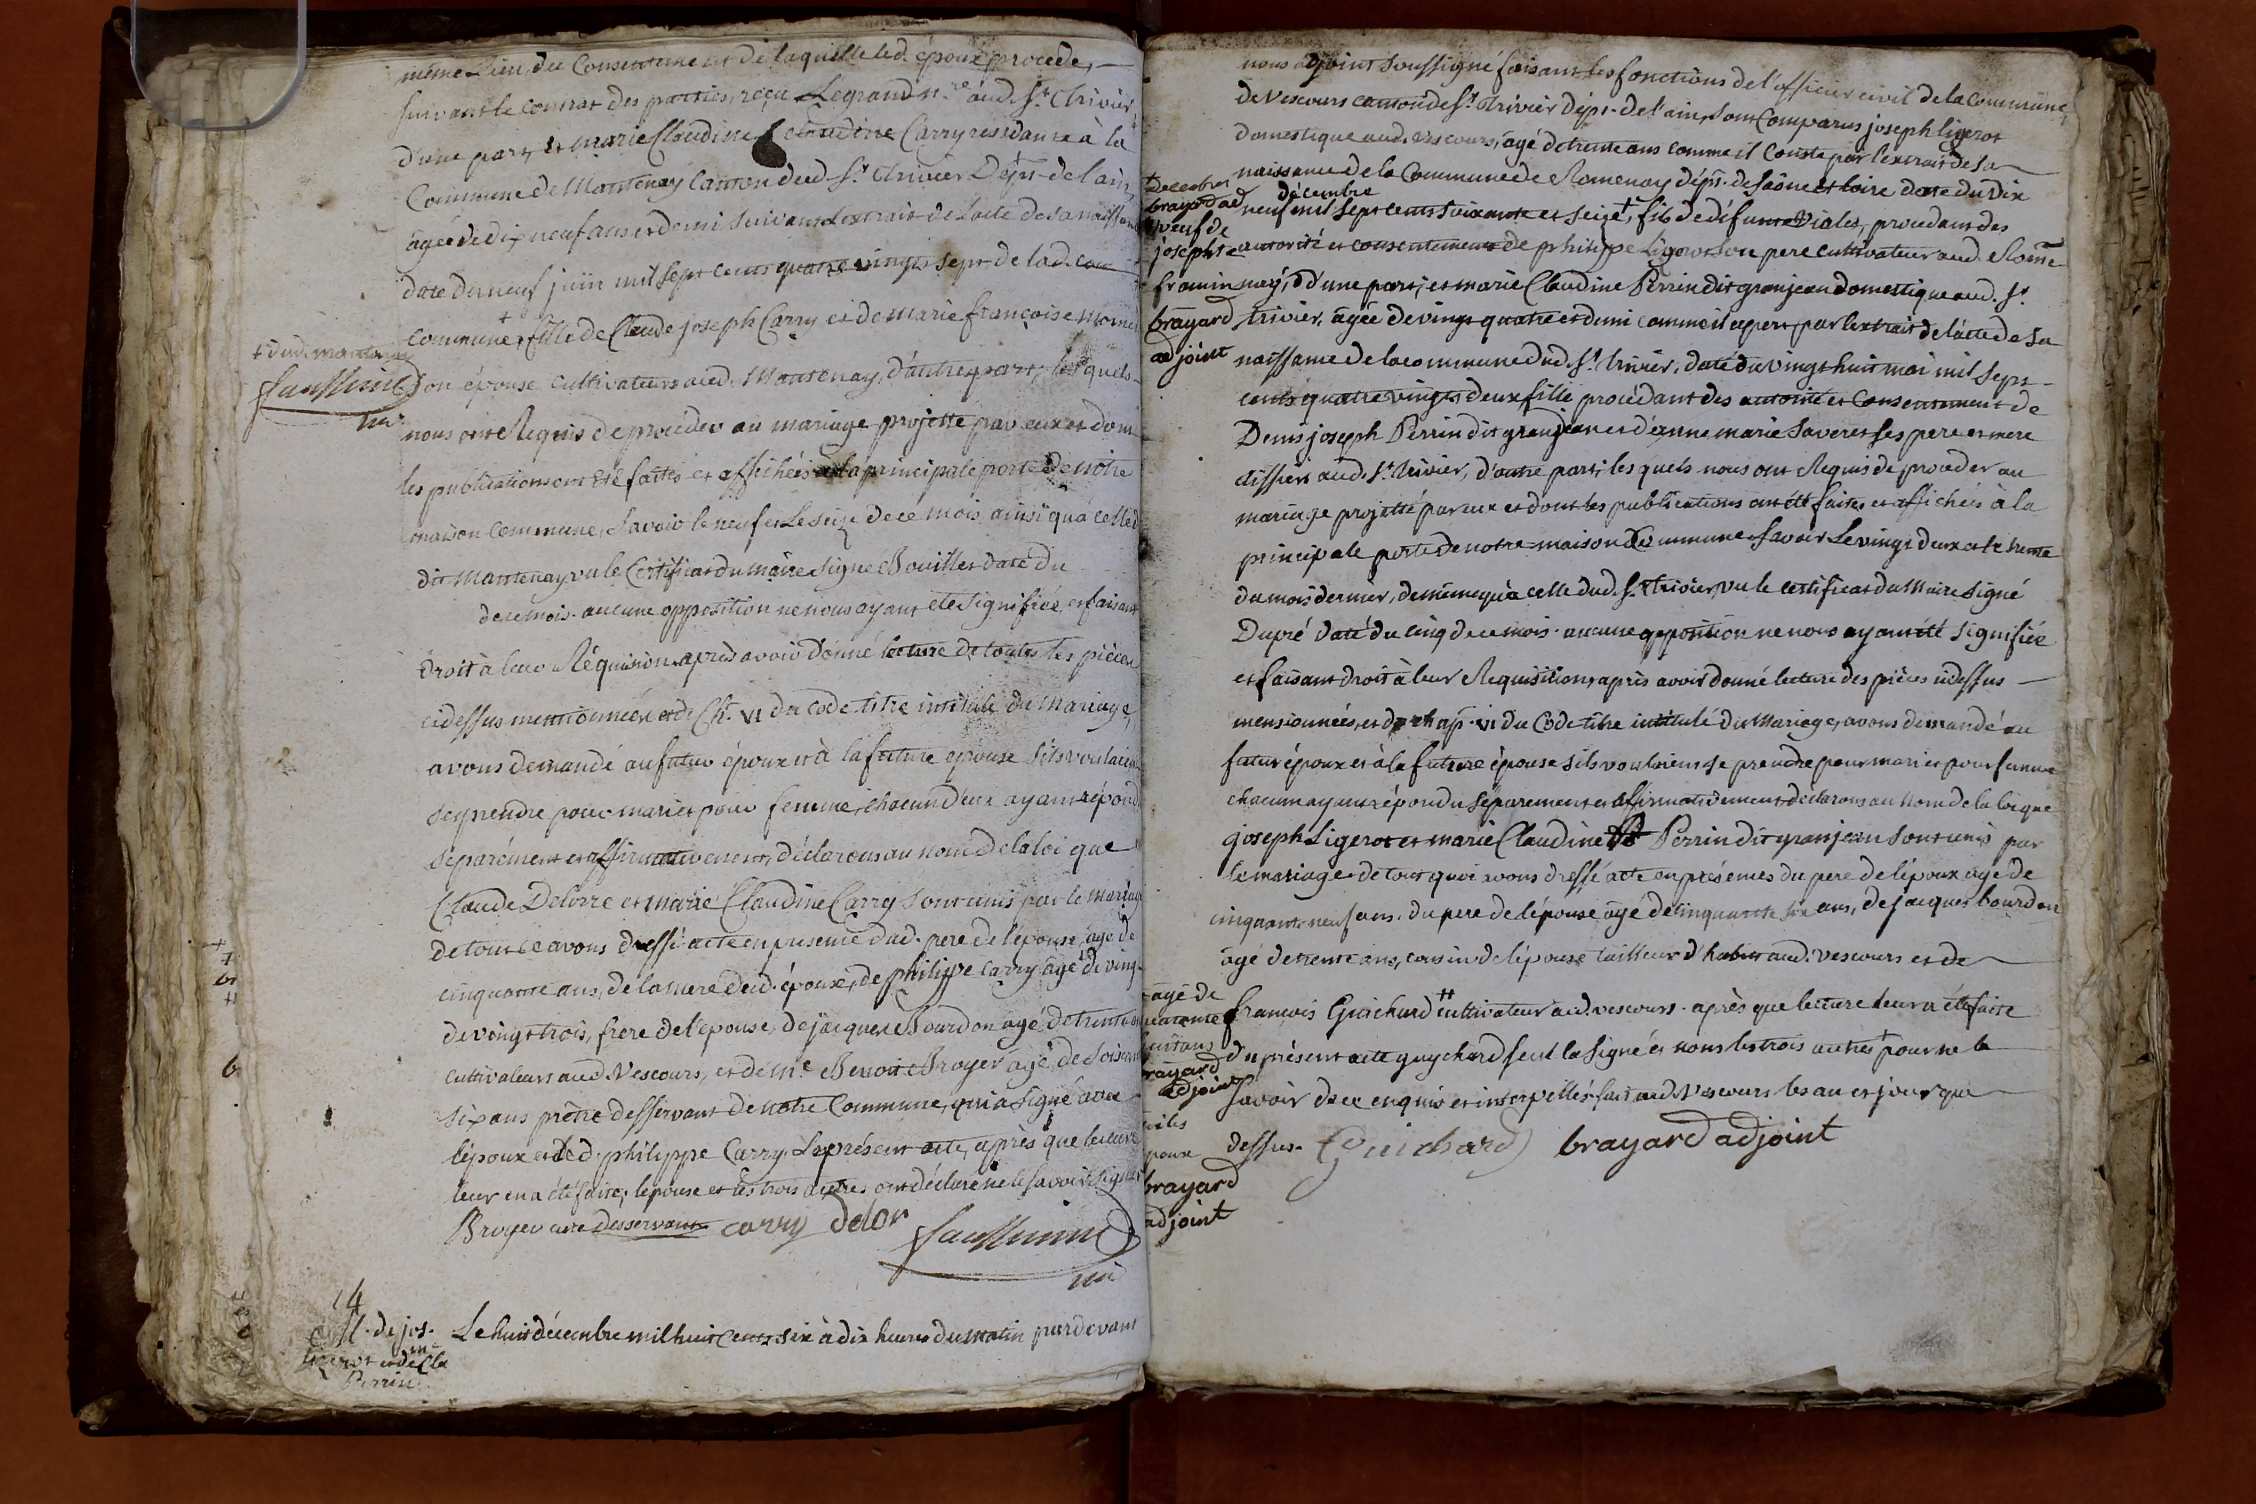 même Lieu, du Consentement de laquelle led. époux procede,
suivant le contrat des parties, reçu Legrand n.re aud. St. Trivier
d'une part, et marie Claudine Claudine Carry residante à la
Commune de Mantenay Canton dud. St. Trivier Dépt. de l'ain,
âgée de dix neuf ans et demi suivant l'extrait de l'acte de sa naissance
daté du neuf juin mil sept cents quatre vingts sept de lad.
commune + fille de Claude joseph Carry et de Marie françoise
+ dud. mantenay
son épouse cultivateurs aud. Mantenay, d'autre part; lesquels
nous ont Requis de proceder au mariage projetté par eux et dont
les publications ont été faites et affichées à la principale porte de notre
maison Commune, savoir le neuf et Le seize de ce mois, ainsi qu'à celle d
dit Mantenay vu le Certificat du maire signé Bouillet daté du
de ce mois. aucune opposition ne nous ayant été signifiée, et faisant
droit à leur Réquisition, après avoir donné lecture de toutes les pièces
cidessus mentionnées et du Ch. VI du Code titre intitulé du Mariage,
avons demandé au futur époux et à la future épouse s'ils voulaient
se prendre pour mari et pour femme, chacun d'eux ayant répondu
séparément et affirmativement, déclarons au nom de la loi que
Claude Delorre et marie Claudine Carry sont unis par le mariage
de tout ce avons dressé acte en présence dud. pere de l'épouse, âgé de
cinquante ans, de la mere dud. époux, de philippe Carry âgé de vingt
de vingt trois, frere de l'épouse, de jacques Bourdon âgé de trente ans
cultivateurs aud. Vescours, et de Mr. Benoit Broyer âgé de soixante
six ans prêtre desservant de notre Commune, qui a signé avec
l'époux et led. philippe Carry. Le présent acte, après que lecture
leur en a été faite; l'épouse et les trois autres ont déclaré ne le savoir signer
Broyer curé desservant carry delor
14
M. de jos.
Ligerot et de m.ie Cla
Perrin
Le huit décembre mil huit Cents six à dix heures du matin pardevant
nous adjoint soussigné faisant les fonctions de l'officier civil de la commune
de Vescours canton de St. Trivier dépt. de l'ain, sont Comparus joseph ligerot
domestique aud. vescours, âgé de trente ans comme il Conste par l'extrait de sa
naissance de la Commune de Romenay dépt. de saône et loire daté du dix
décembre
neuf mil sept cents soixante et seize +, fils de défunte Viales, procedant des
autorité et consentement de philippe Ligerot son pere cultivateur aud. Rome
nay, d'une part; et marie Claudine Perrin dit granjean domestique aud. St.
trivier, âgée de vingt quatre et demi comme il apert par l'extrait de l'acte de sa
naissance de la commune dud. St. trivier, daté du vingt huit mai mil sept
cents quatre vingts deux, fille procédant des autorité et Consentement de
Denis joseph Perrin dit granjean et d'anne marie Saveret ses pere et mere
tissiers aud. St. trivier, d'autre part; lesquels nous ont Requis de proceder au
mariage projetté par eux et dont les publications ont été faites et affichées à la
principale porte de notre maison Commune savoir Le vingt deux et le trente
du mois dernier, de même qu'à celle dud. St. trivier, vu le certificat du Maire signé
Dupré daté du cinq de ce mois. aucune opposition ne nous ayant été signifiée
et faisant droit à leur Requisition, après avoir donné lecture des pièces cidessus
mensionnées, et du chap. VI du Code titre intitulé du Mariage, avons demandé au
futur époux et à la future épouse s'ils vouloient se prendre pour mari et pour femme
chacun ayant répondu séparement et affirmativement, déclarons au nom de la loi que
joseph Ligerot et marie Claudine Perrin dit granjean sont unis par
le mariage. de tout quoi avons dressé acte en présences du pere de l'époux âgé de
cinquante neuf ans, du pere de l'épouse âgé de cinquante six ans, de jacques bourdon
âgé de trente ans, cousin de l'épouse tailleur d'habits aud. vescours et de
francois Guichard ++ cultivateur aud. vescours. après que lecture leur a été faite
du présent acte guychard seul l'a signé et non les trois autres + pour ne le
savoir de ce enquis et interpellés. fait aud. Vescours les an et jour que
dessus. Guichard brayard adjoint
+ Decembre
brayard ad
veuf de
josephte
framin
brayard
adjoint
âgé de
quarante
huit ans
brayard
adjoint
époux
brayard
adjoint